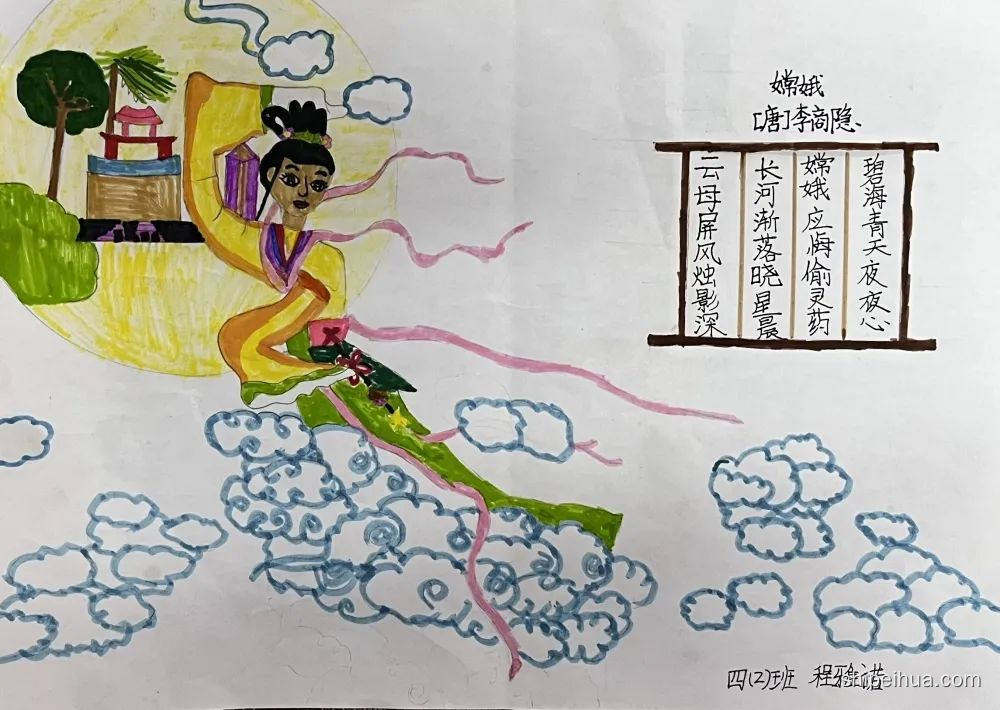 嫦娥
[唐]李商隐
云母屏风烛影深
长河渐落晓星晨
嫦娥应悔偷灵药
碧海青天夜夜心
四(2)班 程雅
shipeihua.com